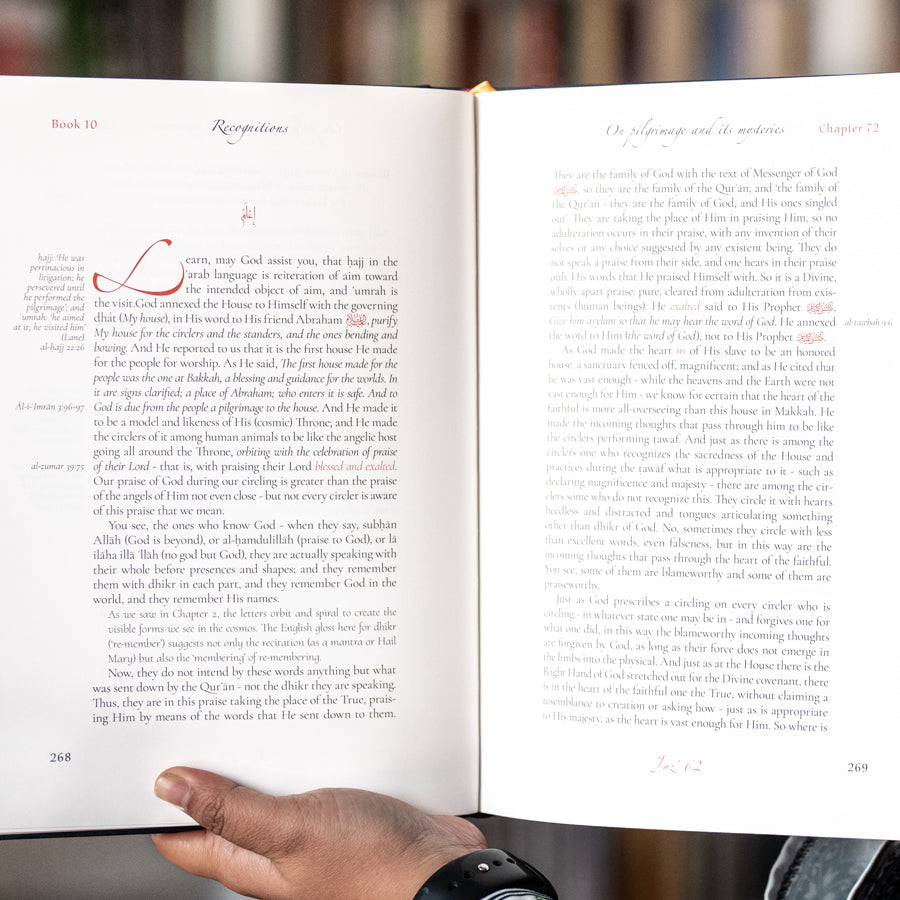 Book 10
Recognitions
إعلم
Learn, may God assist you, that ḥajj in the
ʿarab language is reiteration of aim toward
the intended object of aim, and ʿumrah is
the visit.God annexed the House to Himself with the governing
dhāt (My house), in His word to His friend Abraham, purify
My house for the circlers and the standers, and the ones bending and
bowing. And He reported to us that it is the first house He made
for the people for worship. As He said, The first house made for the
people was the one at Bakkah, a blessing and guidance for the worlds. In
it are signs clarified; a place of Abraham; who enters it is safe. And to
God is due from the people a pilgrimage to the house. And He made it
to be a model and likeness of His (cosmic) Throne; and He made
the circlers of it among human animals to be like the angelic host
going all around the Throne, orbiting with the celebration of praise
of their Lord - that is, with praising their Lord blessed and exalted.
Our praise of God during our circling is greater than the praise
of the angels of Him not even close - but not every circler is aware
of this praise that we mean.
You see, the ones who know God - when they say, subḥān
Allāh (God is beyond), or al-ḥamdulillāh (praise to God), or lā
ilāha illā ʾllāh (no god but God), they are actually speaking with
their whole before presences and shapes; and they remember
them with dhikr in each part, and they remember God in the
world, and they remember His names.
As we saw in Chapter 2, the letters orbit and spiral to create the
visible forms we see in the cosmos. The English gloss here for dhikr
('re-member') suggests not only the recitation (as a mantra or Hail
Mary) but also the 'membering' of re-membering.
Now, they do not intend by these words anything but what
was sent down by the Qurʾān - not the dhikr they are speaking.
Thus, they are in this praise taking the place of the True, prais-
ing Him by means of the words that He sent down to them.
ḥajj: 'He was
pertinacious in
litigation; he
persevered until
he performed the
pilgrimage'; and
ʿumrah: 'he aimed
at it; he visited him'
(Lane)
al-ḥajj 22:26
Āl-i-ʿImrān 3:96-97
al-zumar 39:75
268
On pilgrimage and its mysteries
Chapter 72
They are the family of God with the text of Messenger of God
ﷺ, so they are the family of the Qurʾān; and 'the family of
the Qurʾān - they are the family of God, and His ones singled
out'. They are taking the place of Him in praising Him, so no
adulteration occurs in their praise, with any invention of their
selves or any choice suggested by any existent being. They do
not speak a praise from their side, and one hears in their praise
only His words that He praised Himself with. So it is a Divine,
wholly apart praise: pure, cleared from adulteration from exis-
tents (human beings). He exalted said to His Prophet ﷺ,
Give him asylum so that he may hear the word of God. He annexed
the word to Him (the word of God), not to His Prophet ﷺ.
As God made the heart m of His slave to be an honored
house, a sanctuary fenced off, magnificent; and as He cited that
he was vast enough - while the heavens and the Earth were not
vast enough for Him - we know for certain that the heart of the
faithful is more all-overseeing than this house in Makkah. He
made the incoming thoughts that pass through him to be like
the circlers performing ṭawāf. And just as there is among the
circlers one who recognizes the sacredness of the House and
practices during the ṭawāf what is appropriate to it - such as
declaring magnificence and majesty - there are among the cir-
clers some who do not recognize this. They circle it with hearts
heedless and distracted and tongues articulating something
other than dhikr of God. No, sometimes they circle with less
than excellent words, even falseness, but in this way are the
incoming thoughts that pass through the heart of the faithful.
You see, some of them are blameworthy and some of them are
praiseworthy.
Just as God prescribes a circling on every circler who is
circling - in whatever state one may be in - and forgives one for
what one did, in this way the blameworthy incoming thoughts
are forgiven by God, as long as their force does not emerge in
the limbs into the physical. And just as at the House there is the
Right Hand of God stretched out for the Divine covenant, there
is in the heart of the faithful one the True, without claiming a
resemblance to creation or asking how - just as is appropriate
to His majesty, as the heart is vast enough for Him. So where is
al-tawbah 9:6
Juzʾ 62
269